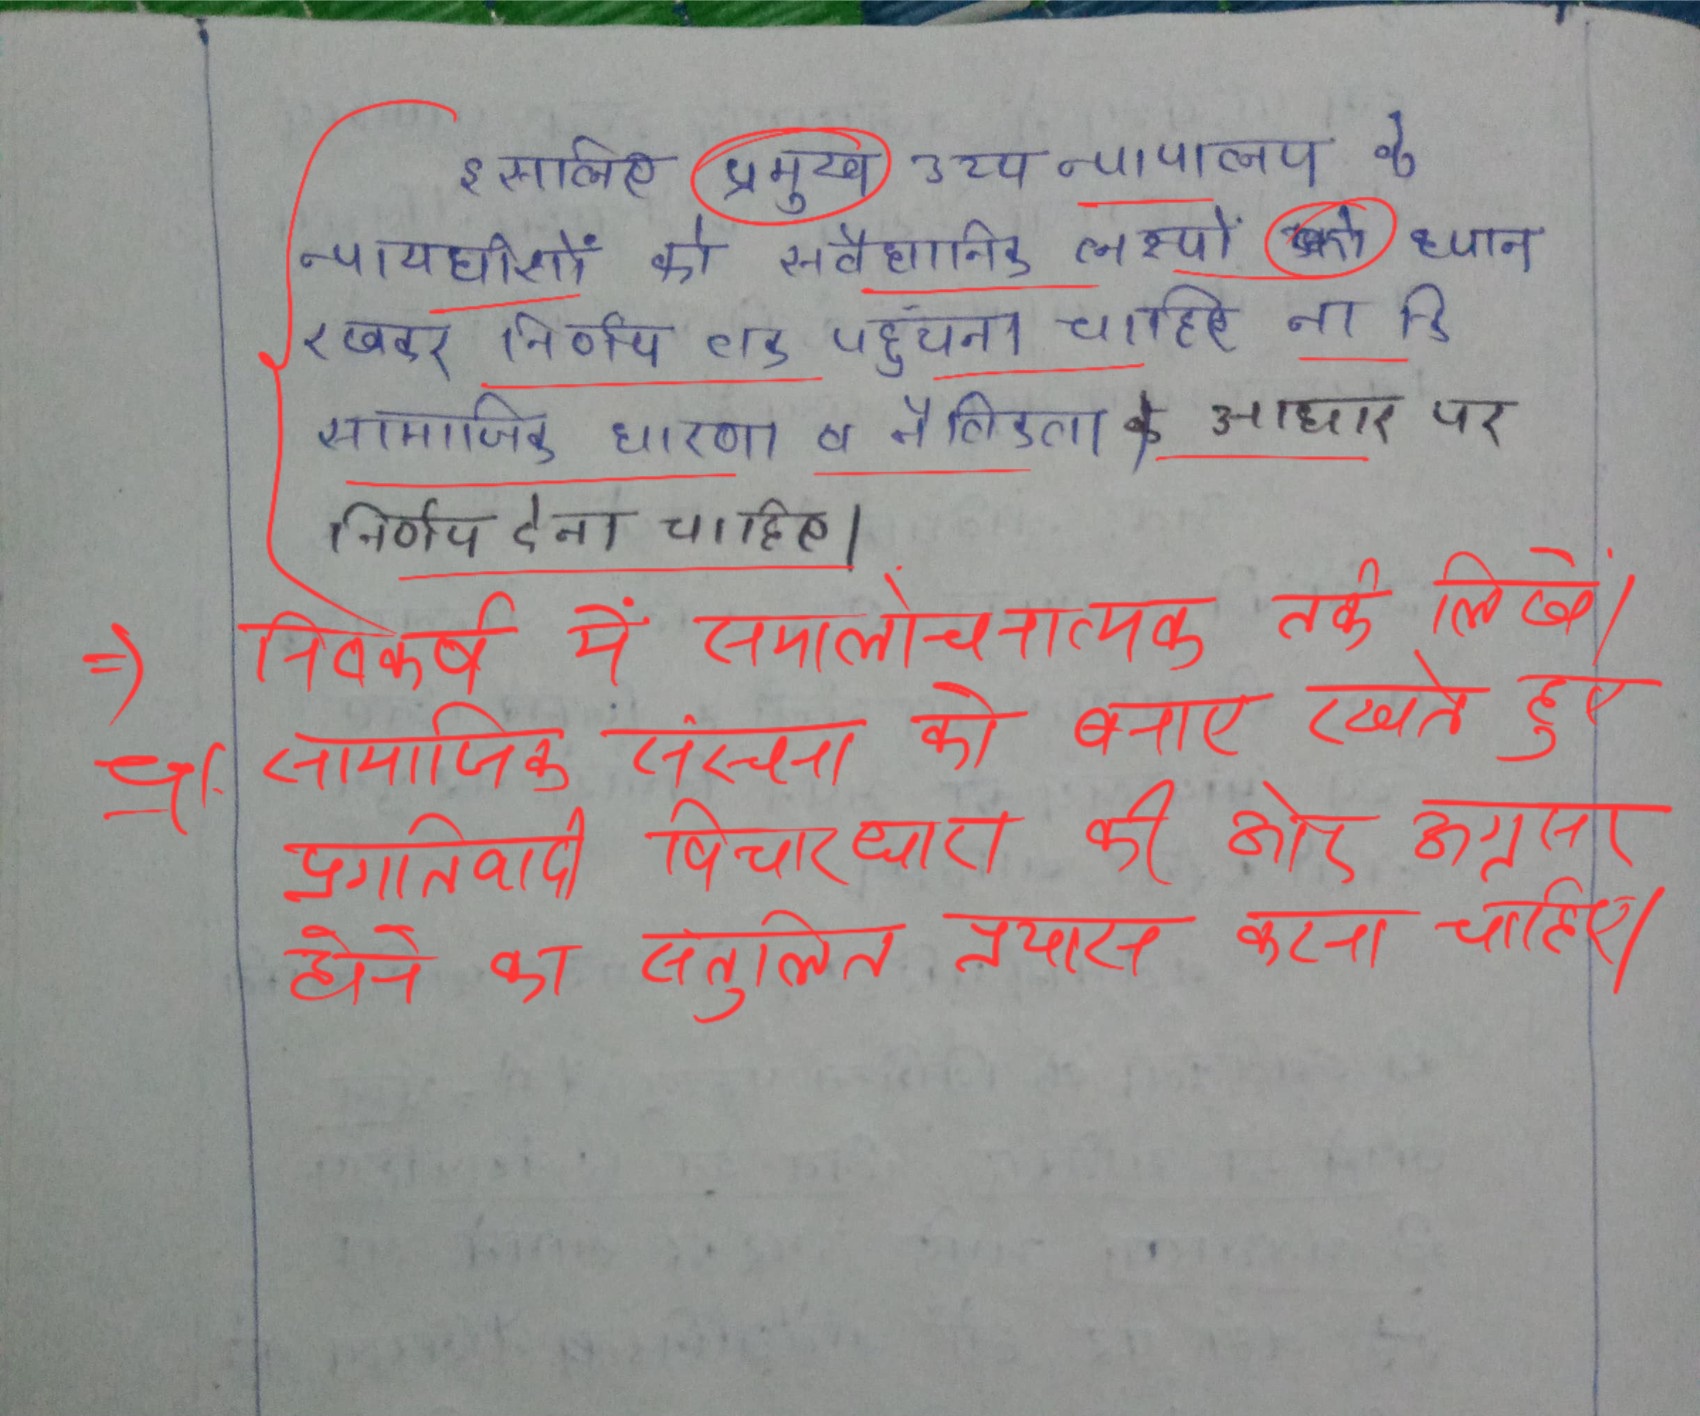 इसलिए प्रमुख उच्च न्यायालय के
न्यायधीशों को सवैधानिक लक्ष्यों को ध्यान
रखकर निर्णय तक पहुंचना चाहिए ना कि
सामाजिक धारणा व नैतिकता के आधार पर
निर्णय देना चाहिए।
=) निष्कर्ष में समालोचनात्मक तर्क लिखें।
सामाजिक संरचना को बनाए रखते हुए
प्रगतिवादी विचारधारा की ओर अग्रसर
होने का संतुलित प्रयास करना चाहिए।